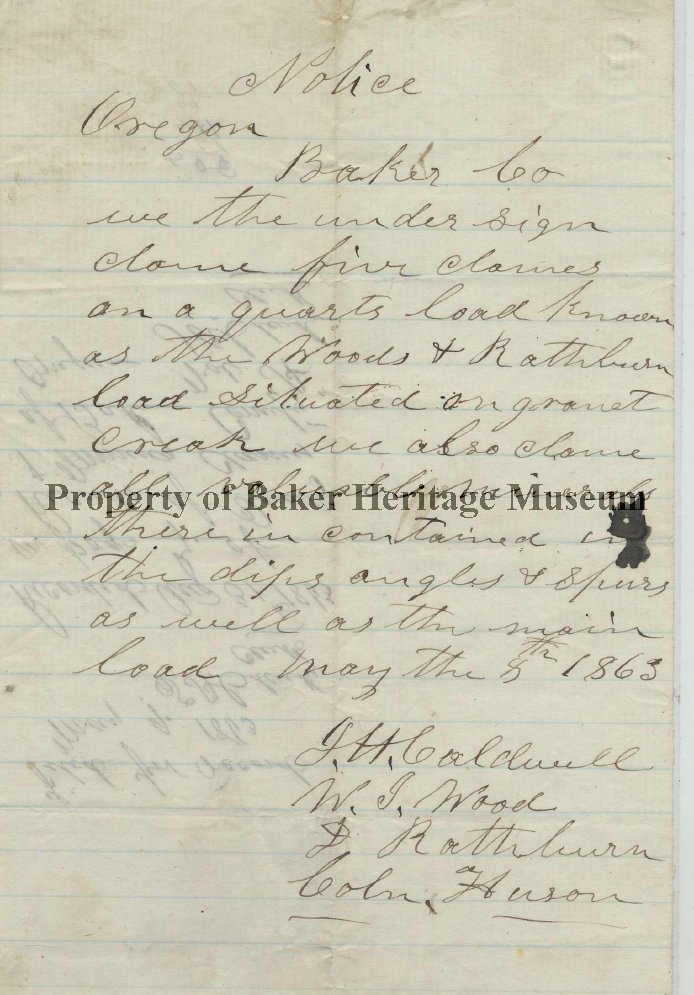 Notice
Oregon
Baker Co
we the under sign
clame five clames
on a quarts load known
as the Woods & Rathburn
load situated on granet
creak we also clame
all valuable minerals
Property of Baker Heritage Museum
there in contained in
the dips angles & spurs
as well as the main
load May the 5th 1863
J. H. Caldwell
W. J. Wood
Rathburn
Huson